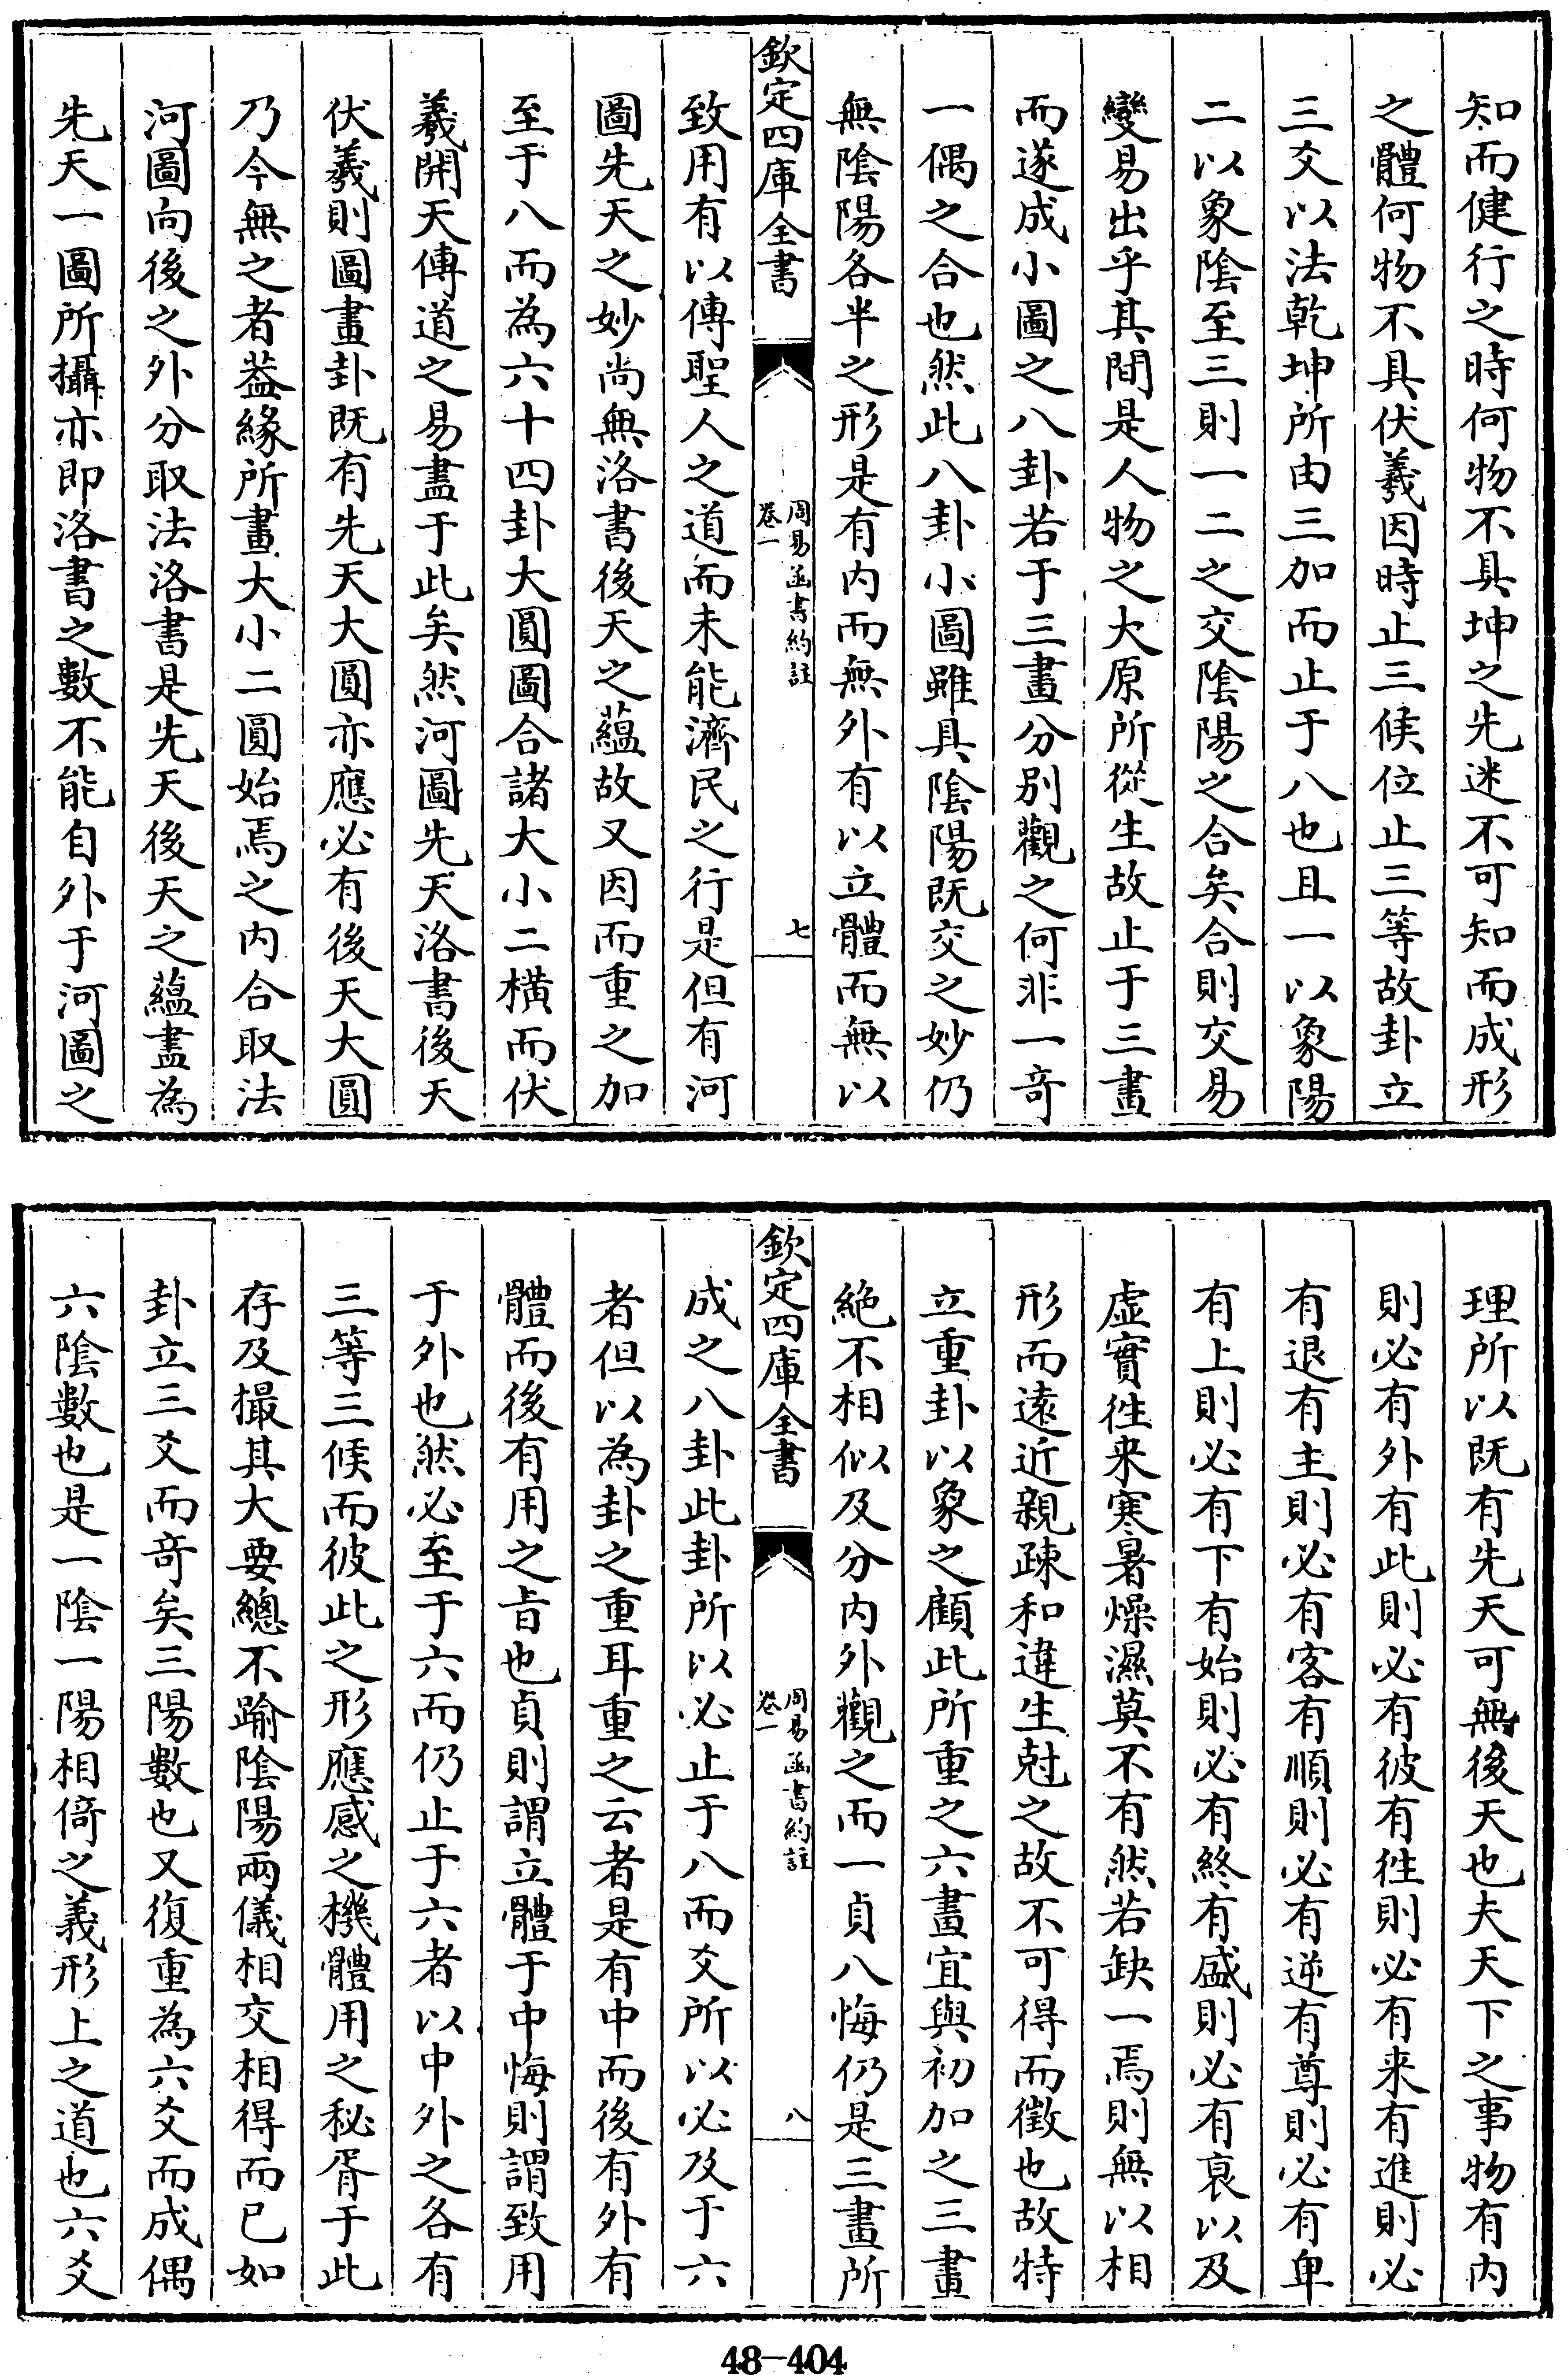 知而健行之時何物不具坤之先迷不可知而成形
之體何物不具伏羲因時止三候位止三等故卦立
三爻以法乾坤所由三加而止于八也且一以象陽
二以象陰至三則一二之交陰陽之合矣合則交易
變易出乎其間是人物之大原所從生故止于三畫
而遂成小圖之八卦若于三畫分別觀之何非一奇
一偶之合也然此八卦小圖雖具陰陽既交之妙仍
無陰陽各半之形是有內而無外有以立體而無以
欽定四庫全書
周易函書約註
卷一
七
致用有以傳聖人之道而未能濟民之行是但有河
圖先天之妙尚無洛書後天之蘊故又因而重之加
至于八而為六十四卦大圓圖合諸大小二橫而伏
羲開天傳道之易盡于此矣然河圖先天洛書後天
伏羲則圖畫卦既有先天大圓亦應必有後天大圓
乃今無之者葢緣所畫大小二圓始焉之內合取法
河圖向後之外分取法洛書是先天後天之蘊盡為
先天一圖所攝亦即洛書之數不能自外于河圖之
理所以既有先天可無後天也夫天下之事物有內
則必有外有此則必有彼有徃則必有来有進則必
有退有主則必有客有順則必有逆有尊則必有卑
有上則必有下有始則必有終有盛則必有衰以及
虛實徃来寒暑燥濕莫不有然若缺一焉則無以相
形而遠近親疎和違生尅之故不可得而徵也故特
立重卦以象之顧此所重之六畫宜與初加之三畫
絶不相似及分內外觀之而一貞八悔仍是三畫所
欽定四庫全書
周易函書約註
卷一
八
成之八卦此卦所以必止于八而爻所以必及于六
者但以為卦之重耳重之云者是有中而後有外有
體而後有用之旨也貞則謂立體于中悔則謂致用
于外也然必至于六而仍止于六者以中外之各有
三等三候而彼此之形應感之機體用之秘胥于此
存及撮其大要總不踰陰陽兩儀相交相得而已如
卦立三爻而奇矣三陽數也又復重為六爻而成偶
六陰數也是一陰一陽相倚之義形上之道也六爻
48-404